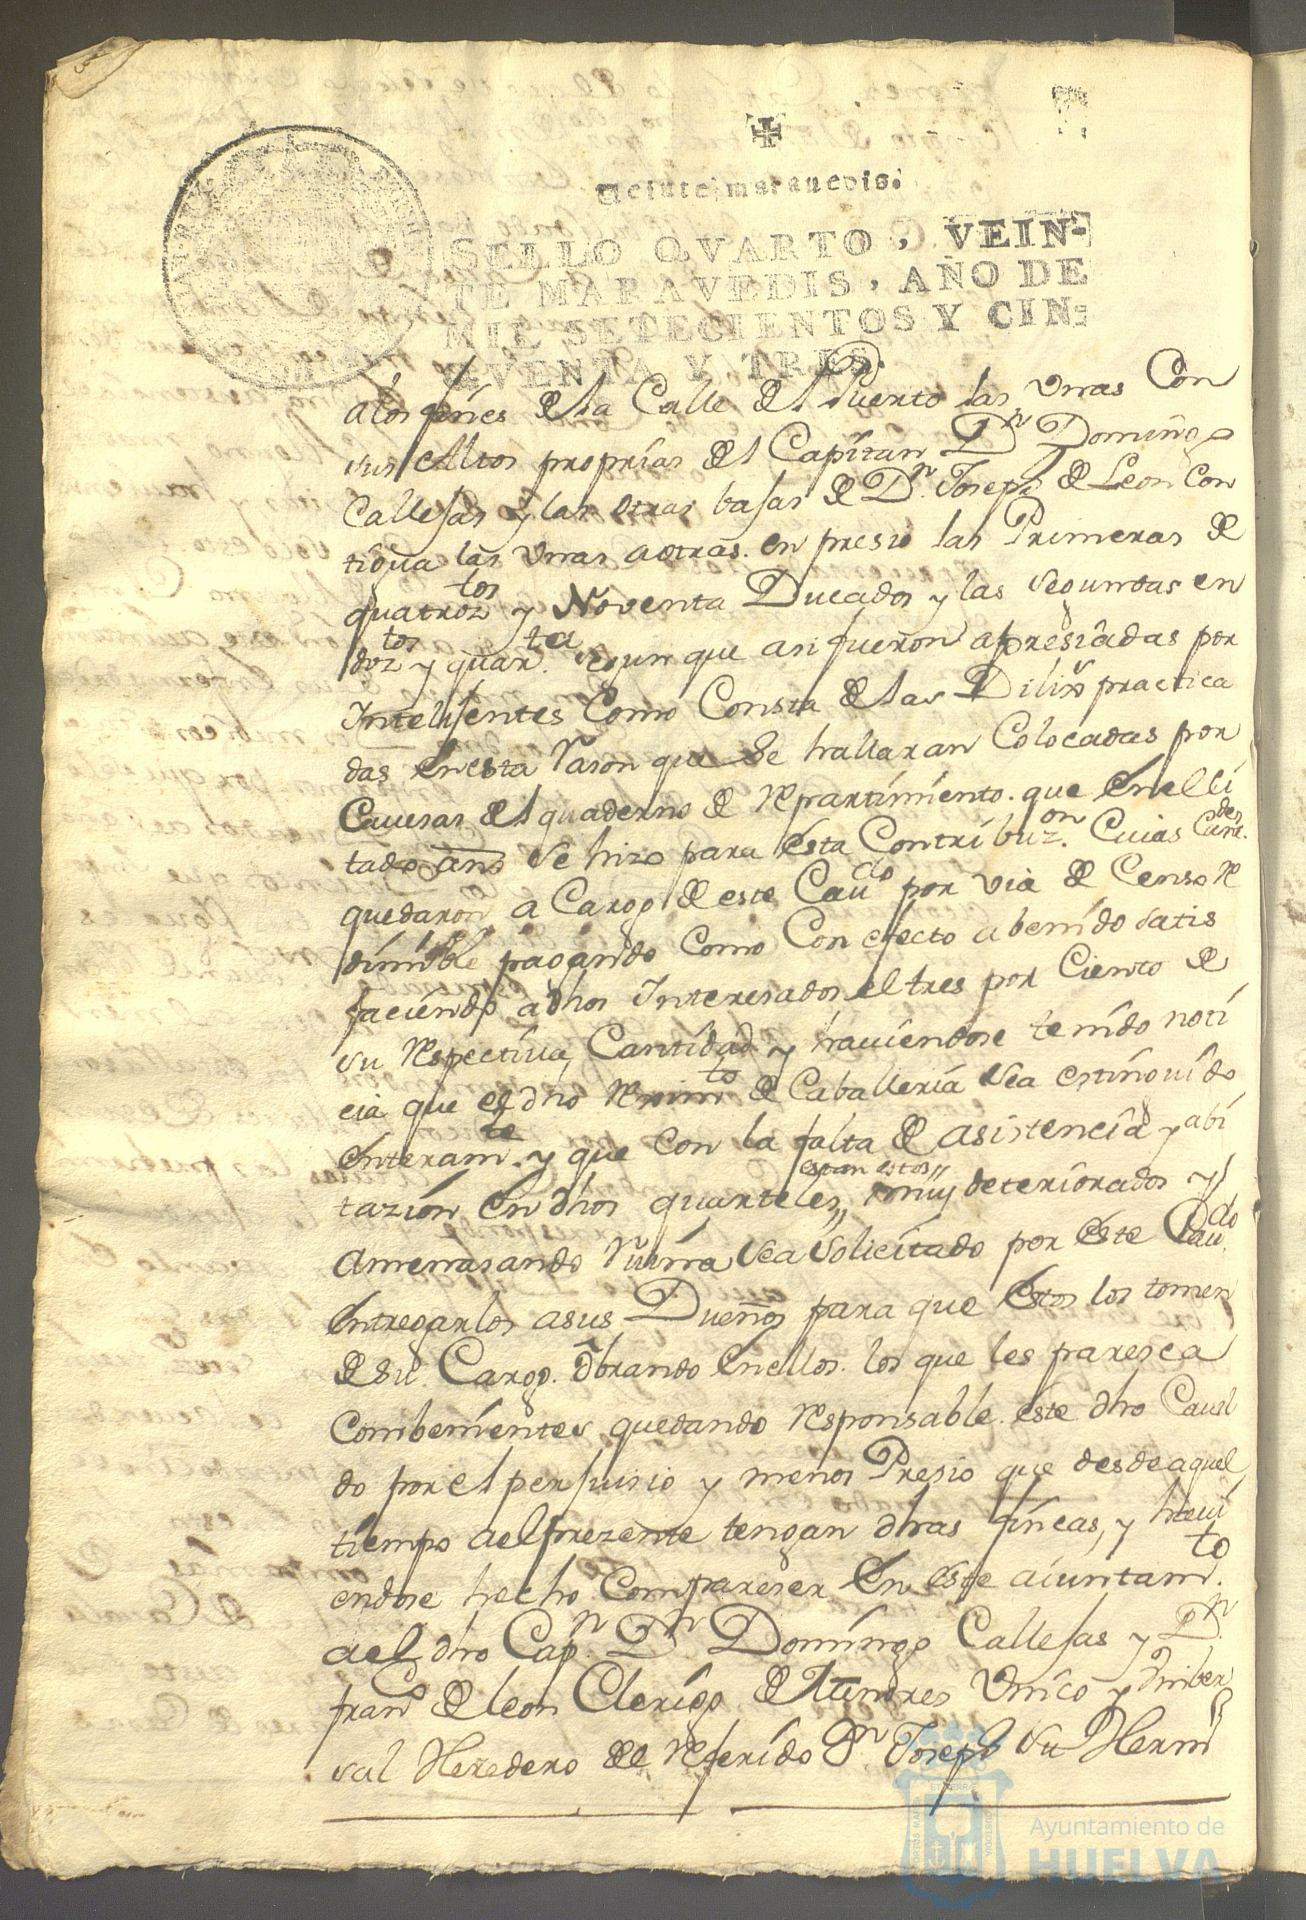 Veinte maravedis.
SELLO QVARTO, VEIN-
TE MARAVEDIS, AÑO DE
MIL SETECIENTOS Y CIN-
QVENTA Y TRES.
de la Calle del Puerto las Unas Con
sus Altos proprias del Capitan Dn Domingo
Callejas y las otras bajas de Dn Joseph de Leon Con
tigua las Unas a otras. en presio las Primeras de
quatroztos y Noventa Ducados y las Segundas en
doztos y quarta. segun que asi fueron apresiadas por
Intelijentes Como Consta de las Dilixs practica
das en esta rason que Se hallaran Colocadas por
Cavesas del quaderno de repartimiento. que en el Ci
tado año Se hizo para esta Contribuzon. Cuias Cantdes
quedaron a Cargo de este Cavdo por via de Censo re
dimible pagando Como Con efecto a benido satis
faciendo a dhos Interesados el tres por Ciento de
su respectiva Cantidad y haviendose tenido noti
cia que el dho reximto de Caballeria Sea estinguido
enteramte. y que con la falta de asistencia y abi
tazion en dhos quarteles, estan estos muy deteriorados y
Amenasando ruina Sea Solicitado por este Cavdo
entregarlos a sus Dueños para que estos los tomen
de su Cargo. obrando en ellos. los que les paresca
Combenientes quedando responsable. este dho Cavil
do por el perjuisio y menos Presio que desde aquel
tiempo a el prezente tengan dhas fincas, y havi
endose hecho Compareser en este aiuntamto.
a el dho Capn. Dn Domingo Callejas y Dn
Franco de Leon Clerigo de Menores Unico y Uniber
sal Heredero de el referido Dn Joseph su Herm
Ayuntamiento de
HUELVA